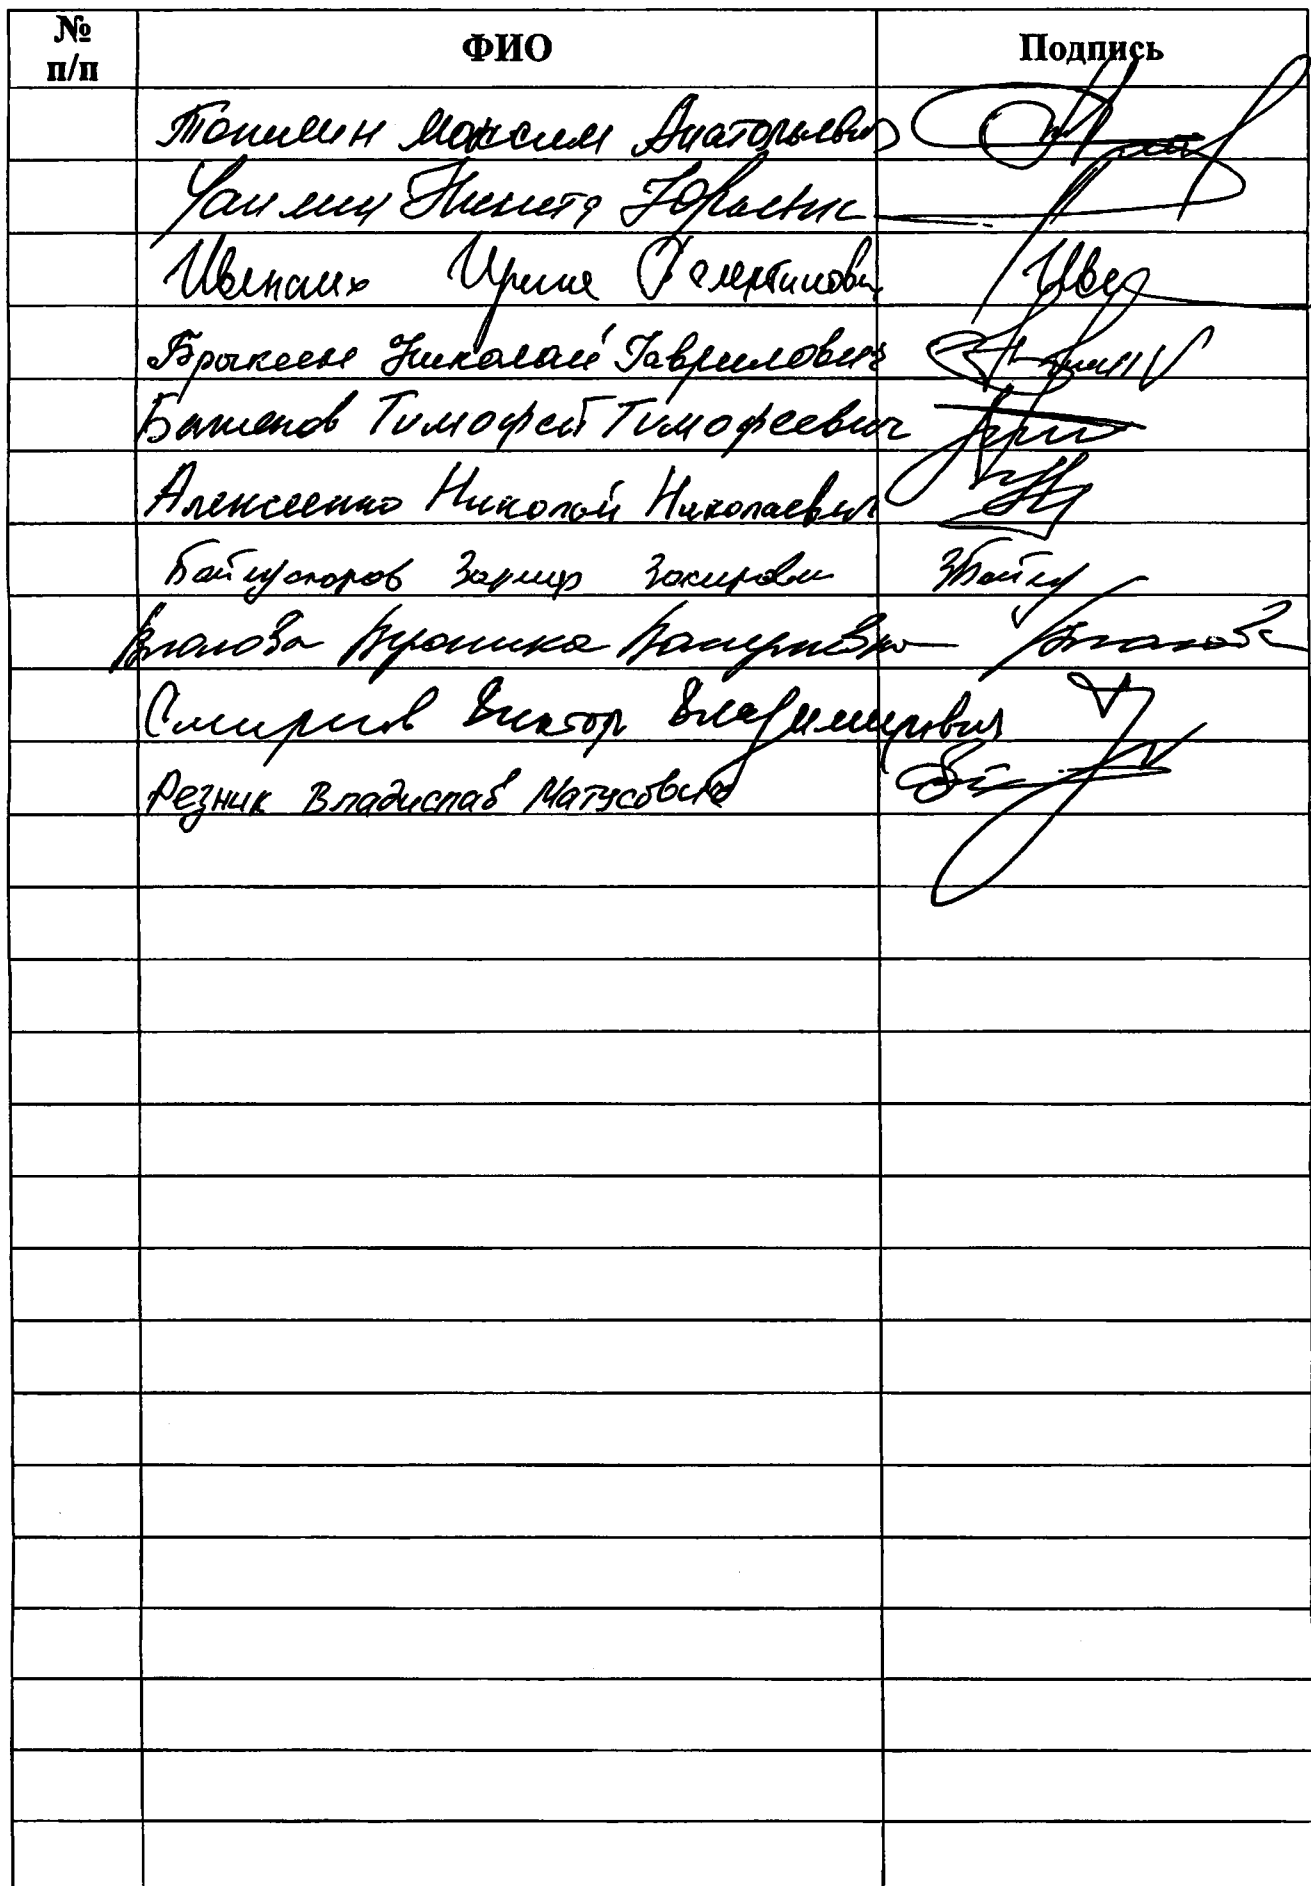 № п/п ФИО Подпись
Топилин Максим Анатольевич
Чаплин Никита Юрьевич
Ивенских Ирина Валентиновна Иве
Брыкин Николай Гаврилович
Баженов Тимофей Тимофеевич
Алексеенко Николай Николаевич
Байгускаров Зариф Закирович ЗБайгу
Власова Вероника Валериевна Власова
Смирнов Виктор Владимирович
Резник Владислав Матусович